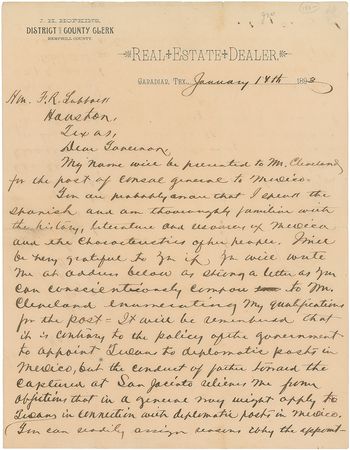 J. H. HOPKINS,
DISTRICT AND COUNTY CLERK
HEMPHILL COUNTY.
REAL ESTATE DEALER.
CANADIAN, TEX., January 14th 1893
Hon. F. R. Lubbock
Houston,
Texas,
Dear Governor,
My name will be presented to Mr. Cleveland
for the post of consul general to Mexico.
You are probably aware that I speak the
Spanish and am thoroughly familiar with
the history, literature and resources of Mexico
and the characteristics of her people. I will
be very grateful to you if you will write
me at address below as strong a letter as you
can conscientiously to Mr.
Cleveland enumerating my qualifications
for the post = It will be remembered that
it is contrary to the policy of the government
to appoint Texans to diplomatic posts in
Mexico, but the conduct of father toward the
captured at San Jacinto relieves me from
objections that in a general way might apply to
Texans in connection with diplomatic posts in Mexico.
(You can readily assign reasons why the appoint-